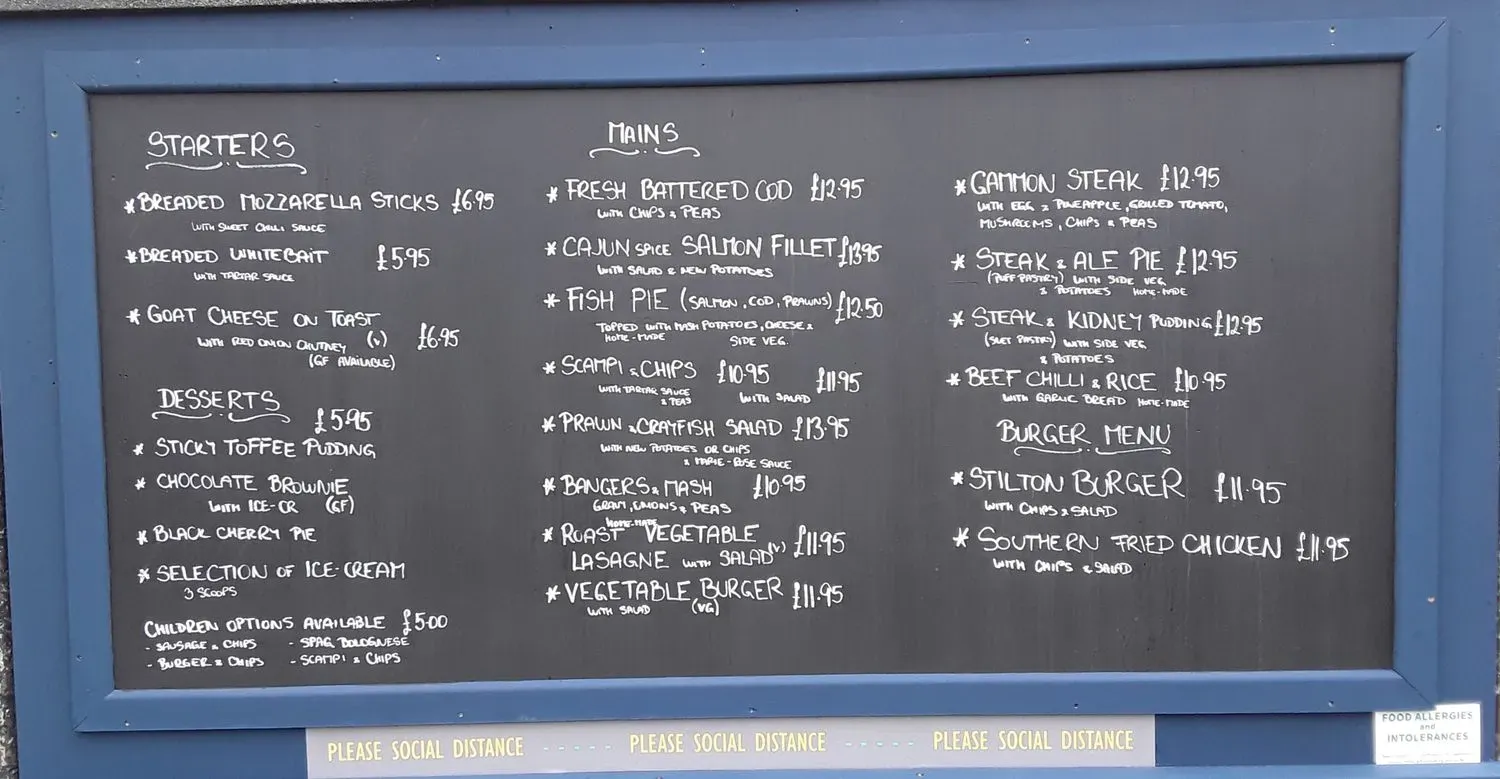 STARTERS
* BREADED MOZZARELLA STICKS £6.95
WITH SWEET CHILLI SAUCE
* BREADED WHITEBAIT £5.95
WITH TARTAR SAUCE
* GOAT CHEESE ON TOAST
WITH RED ONION CHUTNEY (V) £6.95
(GF AVAILABLE)
DESSERTS
£5.95
* STICKY TOFFEE PUDDING
* CHOCOLATE BROWNIE
WITH ICE-CR (GF)
* BLACK CHERRY PIE
* SELECTION OF ICE-CREAM
3 SCOOPS
CHILDREN OPTIONS AVAILABLE £5.00
- SAUSAGE & CHIPS - SPAG BOLOGNESE
- BURGER & CHIPS - SCAMPI & CHIPS
MAINS
* FRESH BATTERED COD £12.95
WITH CHIPS & PEAS
* CAJUN SPICE SALMON FILLET £13.95
WITH SALAD & NEW POTATOES
* FISH PIE (SALMON, COD, PRAWNS) £12.50
TOPPED WITH MASH POTATOES, CHEESE &
HOME-MADE SIDE VEG.
* SCAMPI & CHIPS £10.95 £11.95
WITH TARTAR SAUCE WITH SALAD
& PEAS
* PRAWN & CRAYFISH SALAD £13.95
WITH NEW POTATOES OR CHIPS
& MARIE-ROSE SAUCE
* BANGERS & MASH £10.95
GRAVY, ONIONS & PEAS
HOME-MADE
* ROAST VEGETABLE
LASAGNE WITH SALAD (V) £11.95
* VEGETABLE BURGER £11.95
WITH SALAD (VG)
* GAMMON STEAK £12.95
WITH EGG & PINEAPPLE, GRILLED TOMATO,
MUSHROOMS, CHIPS & PEAS
* STEAK & ALE PIE £12.95
(PUFF PASTRY) WITH SIDE VEG
& POTATOES HOME-MADE
* STEAK & KIDNEY PUDDING £12.95
(SUET PASTRY) WITH SIDE VEG
& POTATOES
* BEEF CHILLI & RICE £10.95
WITH GARLIC BREAD HOME-MADE
BURGER MENU
* STILTON BURGER £11.95
WITH CHIPS & SALAD
* SOUTHERN FRIED CHICKEN £11.95
WITH CHIPS & SALAD
PLEASE SOCIAL DISTANCE ----- PLEASE SOCIAL DISTANCE ----- PLEASE SOCIAL DISTANCE
FOOD ALLERGIES
and
INTOLERANCES